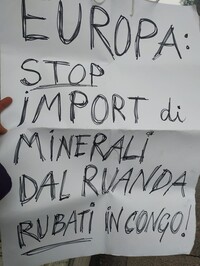 EUROPA:
STOP
iMPORT di
MINERALI
DAL RUANDA
RUBATI IN CONGO!